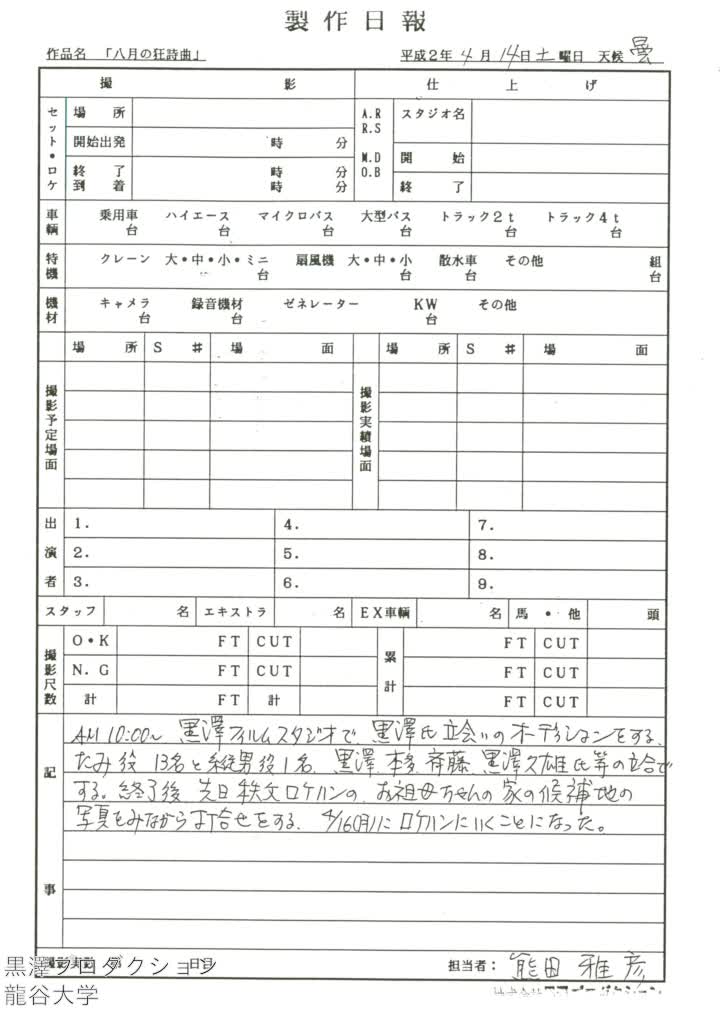 製作日報
作品名 「八月の狂詩曲」 平成2年 4月 14日 土曜日 天候 曇
撮 影 仕 上 げ
セット・ロケ 場 所 A.R R.S M.D O.B スタジオ名
開始出発 時 分 開 始
終 了 時 分 終 了
到 着 時 分
車輌 乗用車 ハイエース マイクロバス 大型バス トラック2t トラック4t
台 台 台 台 台 台
特機 クレーン 大・中・小・ミニ 扇風機 大・中・小 散水車 その他 組
台 台 台 台
機材 キャメラ 録音機材 ゼネレーター KW その他
台 台 台
場 所 S # 場 面 場 所 S # 場 面
撮影予定場面 撮影実績場面
出演者 1. 4. 7.
2. 5. 8.
3. 6. 9.
スタッフ 名 エキストラ 名 EX車輌 名 馬・他 頭
撮影尺数 O・K FT CUT 累計 FT CUT
N.G FT CUT FT CUT
計 FT 計 FT CUT
記事
AM 10:00~ 黒澤フィルムスタジオで、黒澤氏立会いのオーディションをする。
たみ役 13名と縦男役1名、黒澤、本多、斉藤、黒澤久雄氏等の立合で
する。終了後、先日秩父ロケハンの、お祖母ちゃんの家の候補地の
写真をみながら打合せをする。4/16(月)にロケハンにいくことになった。
日目 担当者: 熊田雅彦
黒澤プロダクション
龍谷大学